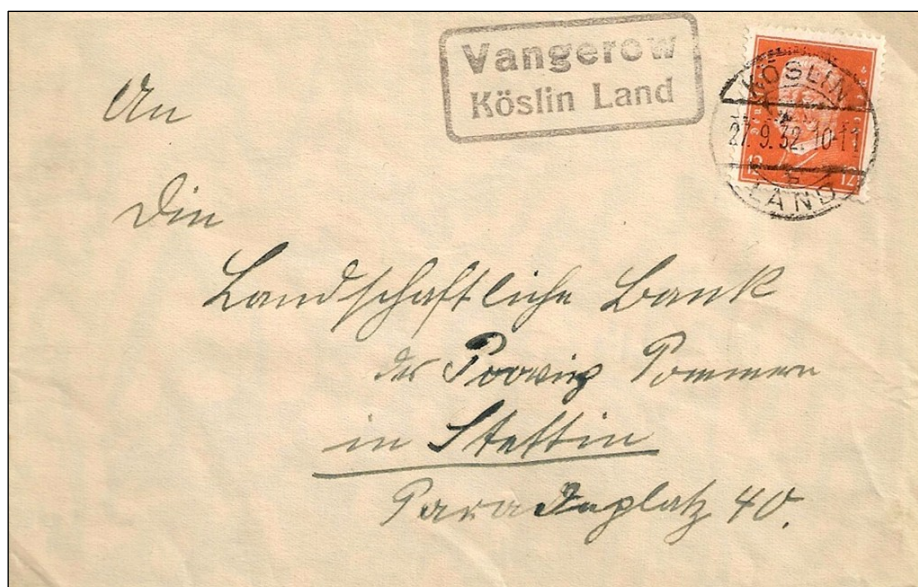 Vangerow
Köslin Land
KÖSLIN
27.9.32.10-11
LAND
12 12
An
Die
Landschaftliche Bank
der Provinz Pommern
in Stettin
Paradeplatz 40.